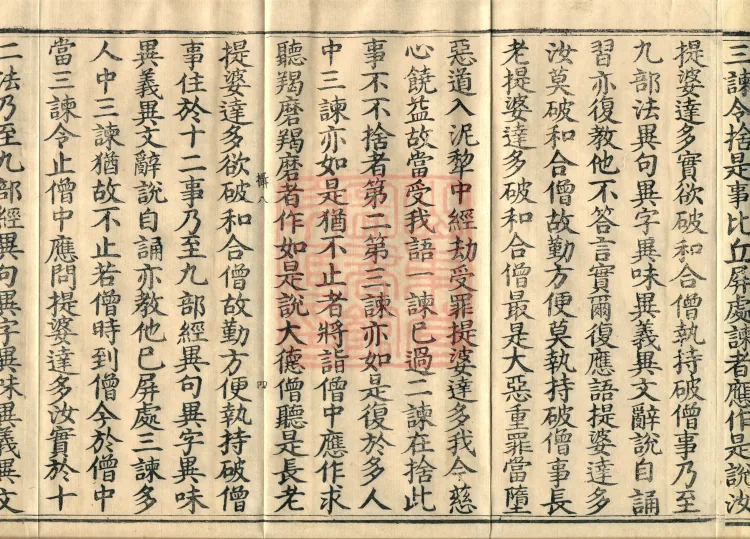 三諫令捨是事比丘屏處諫者應作是說汝
提婆達多實欲破和合僧執持破僧事乃至
九部法異句異字異味異義異文辭說自誦
習亦復教他不答言實爾復應語提婆達多
汝莫破和合僧故勤方便莫執持破僧事長
老提婆達多破和合僧最是大惡重罪當墮
惡道入泥犁中經劫受罪提婆達多我今慈
心饒益故當受我語一諫已過二諫在捨此
事不不捨者第二第三諫亦如是復於多人
中三諫亦如是猶不止者將詣僧中應作求
聽羯磨羯磨者作如是說大德僧聽是長老
攝八 四
提婆達多欲破和合僧故勤方便執持破僧
事住於十二事乃至九部經異句異字異味
異義異文辭說自誦亦教他已屏處三諫多
人中三諫猶故不止若僧時到僧今於僧中
當三諫令止僧中應問提婆達多汝實於十
二法乃至九部經異句異字異味異義異文